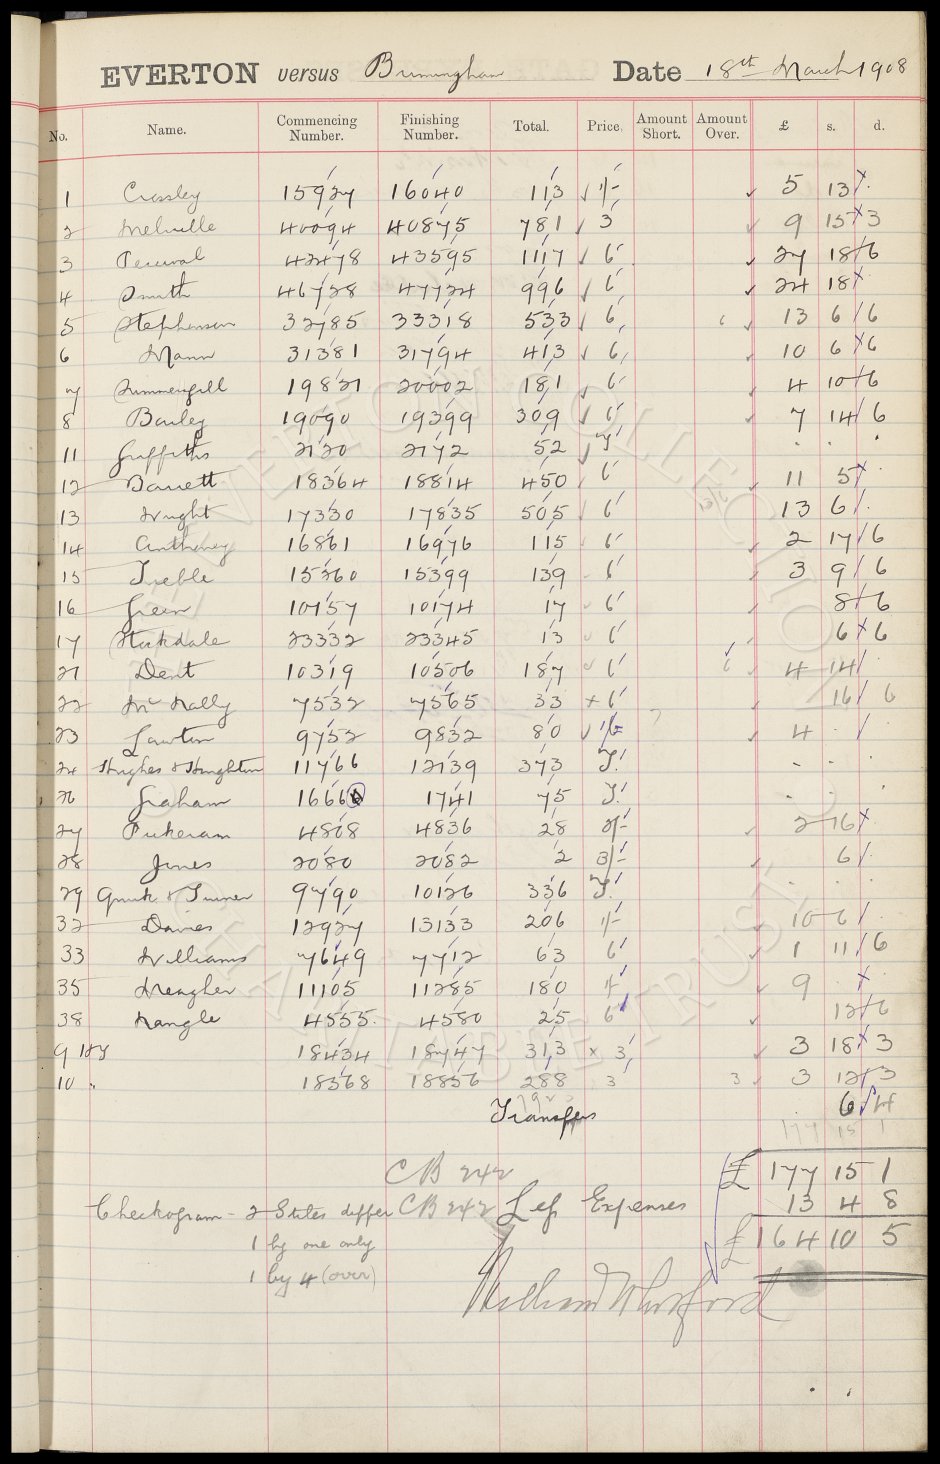 EVERTON versus Birmingham Date 18th March 1908
No. Name. Commencing Number. Finishing Number. Total. Price. Amount Short. Amount Over. £ s. d.
1 Crossley 15927 16040 113 1/- 5 13 .
2 Melville 40094 40875 781 3 9 15 3
3 Percival 42478 43595 1117 6 27 18 6
4 Smith 46728 47724 996 6 24 18 .
5 Stephenson 32785 33318 533 6 6 13 6 6
6 Mann 31381 31794 413 6 10 6 6
7 Summergill 19821 20002 181 6 4 10 6
8 Bailey 19090 19399 309 6 7 14 6
11 Griffiths 2120 2172 52 T . . .
12 Barrett 18364 18814 450 6 11 5 .
13 Wright 17330 17835 505 6 13 6 .
14 Anthoney 16861 16976 115 6 2 17 6
15 Treble 15260 15399 139 6 3 9 6
16 Green 10157 10174 17 6 8 6
17 Stockdale 23332 23345 13 6 6 6
21 Dent 10319 10506 187 6 6 4 14 .
22 McNally 7532 7565 33 6 16 6
23 Lawton 9752 9832 80 1/- 4 . .
24 Hughes & Houghton 11766 12139 373 T. . . .
26 Graham 1666 1741 75 T. . . .
27 Pickeram 4808 4836 28 2/- 2 16 .
28 Jones 2080 2082 2 3/- 6 .
29 Quirk & Turner 9790 10126 336 T. . . .
32 Davies 12927 13133 206 1/- 10 6 .
33 Williams 7649 7712 63 6 1 11 6
35 Meagher 11105 11285 180 1/- 9 . .
38 Nangle 4555 4580 25 6 12 6
9 18434 18747 313 3 3 18 3
10 " 18568 18856 288 3 3 3 12 3
Transfers 6 4
177 15 1
CB 242 £ 177 15 1
Checkogram - 2 States differ CB 242 Less Expenses 13 4 8
1 by one only £ 164 10 5
1 by 4 (over)